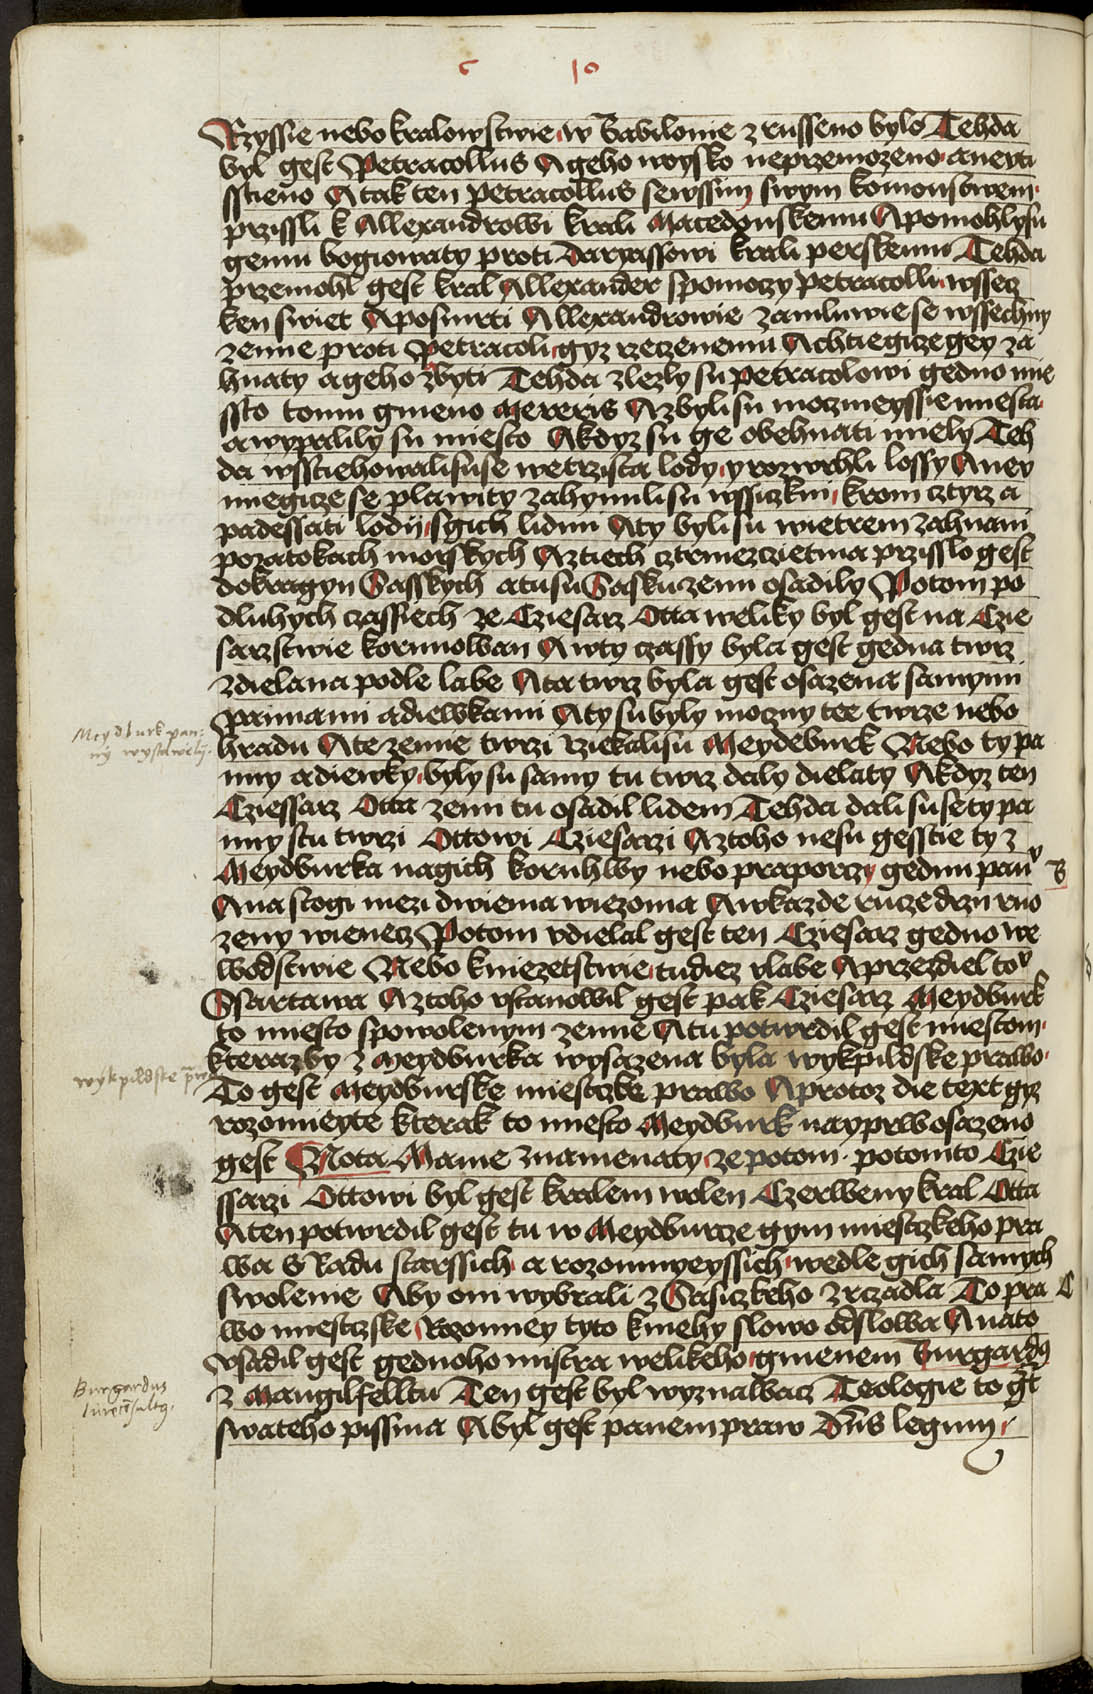 c 10
Rzyssie nebo kralowstwie w Babilonie zrusseno bylo Tehda
byl gest Petracollus Ageho woysko neprzemozeno aneyti
sstieno Atak ten Petracollus sewssim swym komonstwem
przissli k Allexandrowi krali Macedonskemu Apomohlysu
gemu bogiowaty proti Daryassowi krali perskemu Tehda
przemohl gest kral Allexander spomoczy Petracolli wssecz
ken swiet Aposmrti Allexandrowie zamluwie se wssechny
zemie proti Petracoli gyz rzeczenemu Achtiegicze gey za
hnaty ageho zbyti Tehda zlezly su petracolowi gedno mie
ssto tomu gmeno Mereris Azbylisu moczneyssie miesta
awypalily su miesto Akdyz su ge obehnati miely Teh
da wsstiehowalisuse wetrzista lody y rozwrhli lossy Aney
miegicze se plawity zahynulisu wssiczkni krom cztyrz a
padessati lodij sgich lidmi Aty bylisu wietrem zahnani
pozatokach morskych Aztiech cztrmezczietma przisslo gest
dokragyn Sasskych atusu Sasku zemi osadily Potom po
dluhych czassiech ze Cziesarz Otta weliky byl gest na Czie
sarzstwie korunowan Awty czassy byla gest gedna twrz
zdielana podle labe Ata twrz byla gest osazena samymi
pannami adiewkami Aty su byly moczny tee twrze nebo
hradu Ate zemie twrzi rziekalisu Meydeburk Nebo ty pa
nny adiewky byly su samy tu twrz daly dielaty Akdyz ten
Cziessarz Otta zemi tu osadil lidem Tehda dali su se ty pa
nny stu twrzi Ottowi Cziesarzi Aztoho nesu gesstie ty z
Meydburka nagich koruhwy nebo praporczy gednu pannu
B
Ana stogi mezi dwiema wiezoma Awkazde rucze drzy ruo
zeny wienecz Potom vdielal gest ten Cziesarz gedno we
wodstwie Nebo kniezetstwie tudiez vlabe Aprzezdiel tou
Ssartawa Aztoho vstanowil gest pak Cziesarz Meydburk
to miesto spowolenym zemie Atu potwrdil gest miestom
kterazby z Meydburka wysazena byla wykpildske prawo
To gest Meydburske miestcke prawo Aprotoz die text gyz
rozomieyte kterak to miesto Meydburk nayprw osazeno
gest Nota Mame znamenaty ze potom potomto Czie
ssarzi Ottowi byl gest kralem wolen Czerweny kral Otta
Aten potwrdil gest tu w Meydburcze gym miestczkeho pra
wa S Radu starssich a rozomnyeyssich wedle gich samych
swolenie Aby oni wybrali z Sasiczkeho zrczadla To pra
C
wo miestczske Rozomiey tyto kniehy slowo odslowa Anato
vsadil gest gednoho mistra welikeho gmenem Burgardus
z Mangilfelltu Ten gest byl wyznalbacz Teologie to gest
swateho pissma Abyl gest panem praw Dns legum
Meydburk pan=
ny wystawěly.
wykpildske prawo
Burgardus
Iureconsultus.